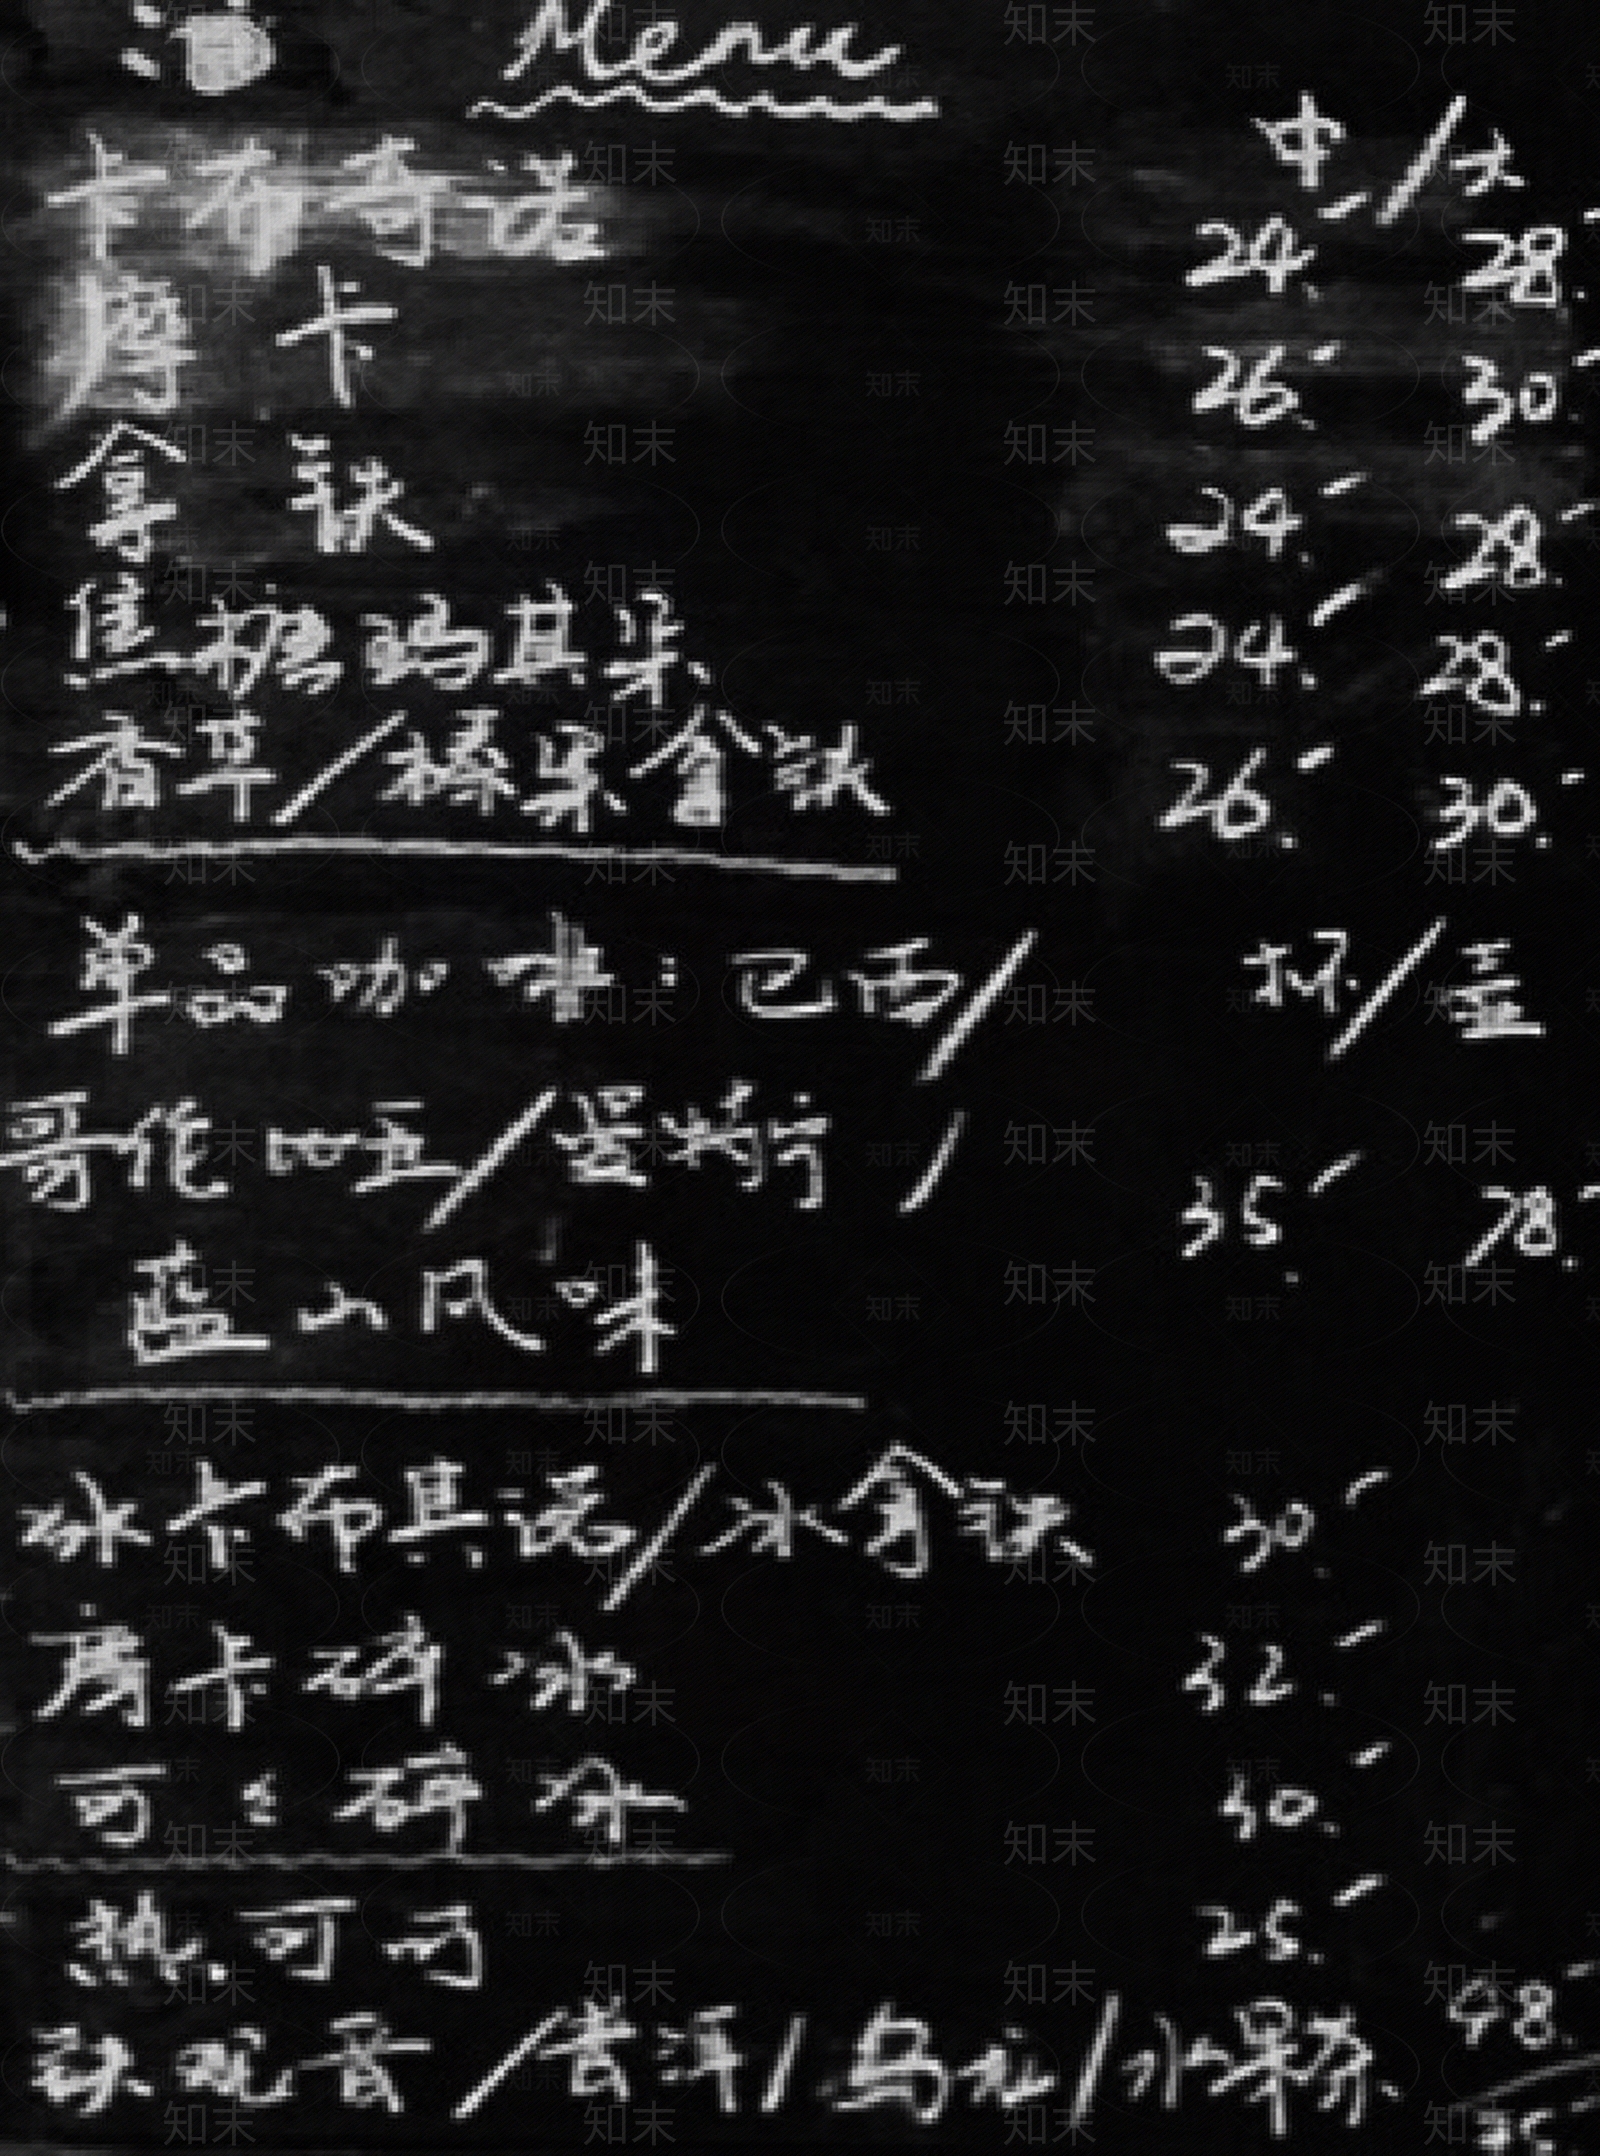 Menu
中/大
卡布奇诺 24. 28.
摩卡 26. 30.
拿铁 24. 28.
焦糖玛其朵 24. 28.
香草/榛果拿铁 26. 30.
单品咖啡:巴西/ 杯/壶
哥伦比亚/曼特宁/ 35. 78.
蓝山风味
冰卡布其诺/冰拿铁 30.
摩卡碎冰 32.
可可碎冰 30.
热可可 25.
铁观音/普洱/乌龙/水果茶 98.